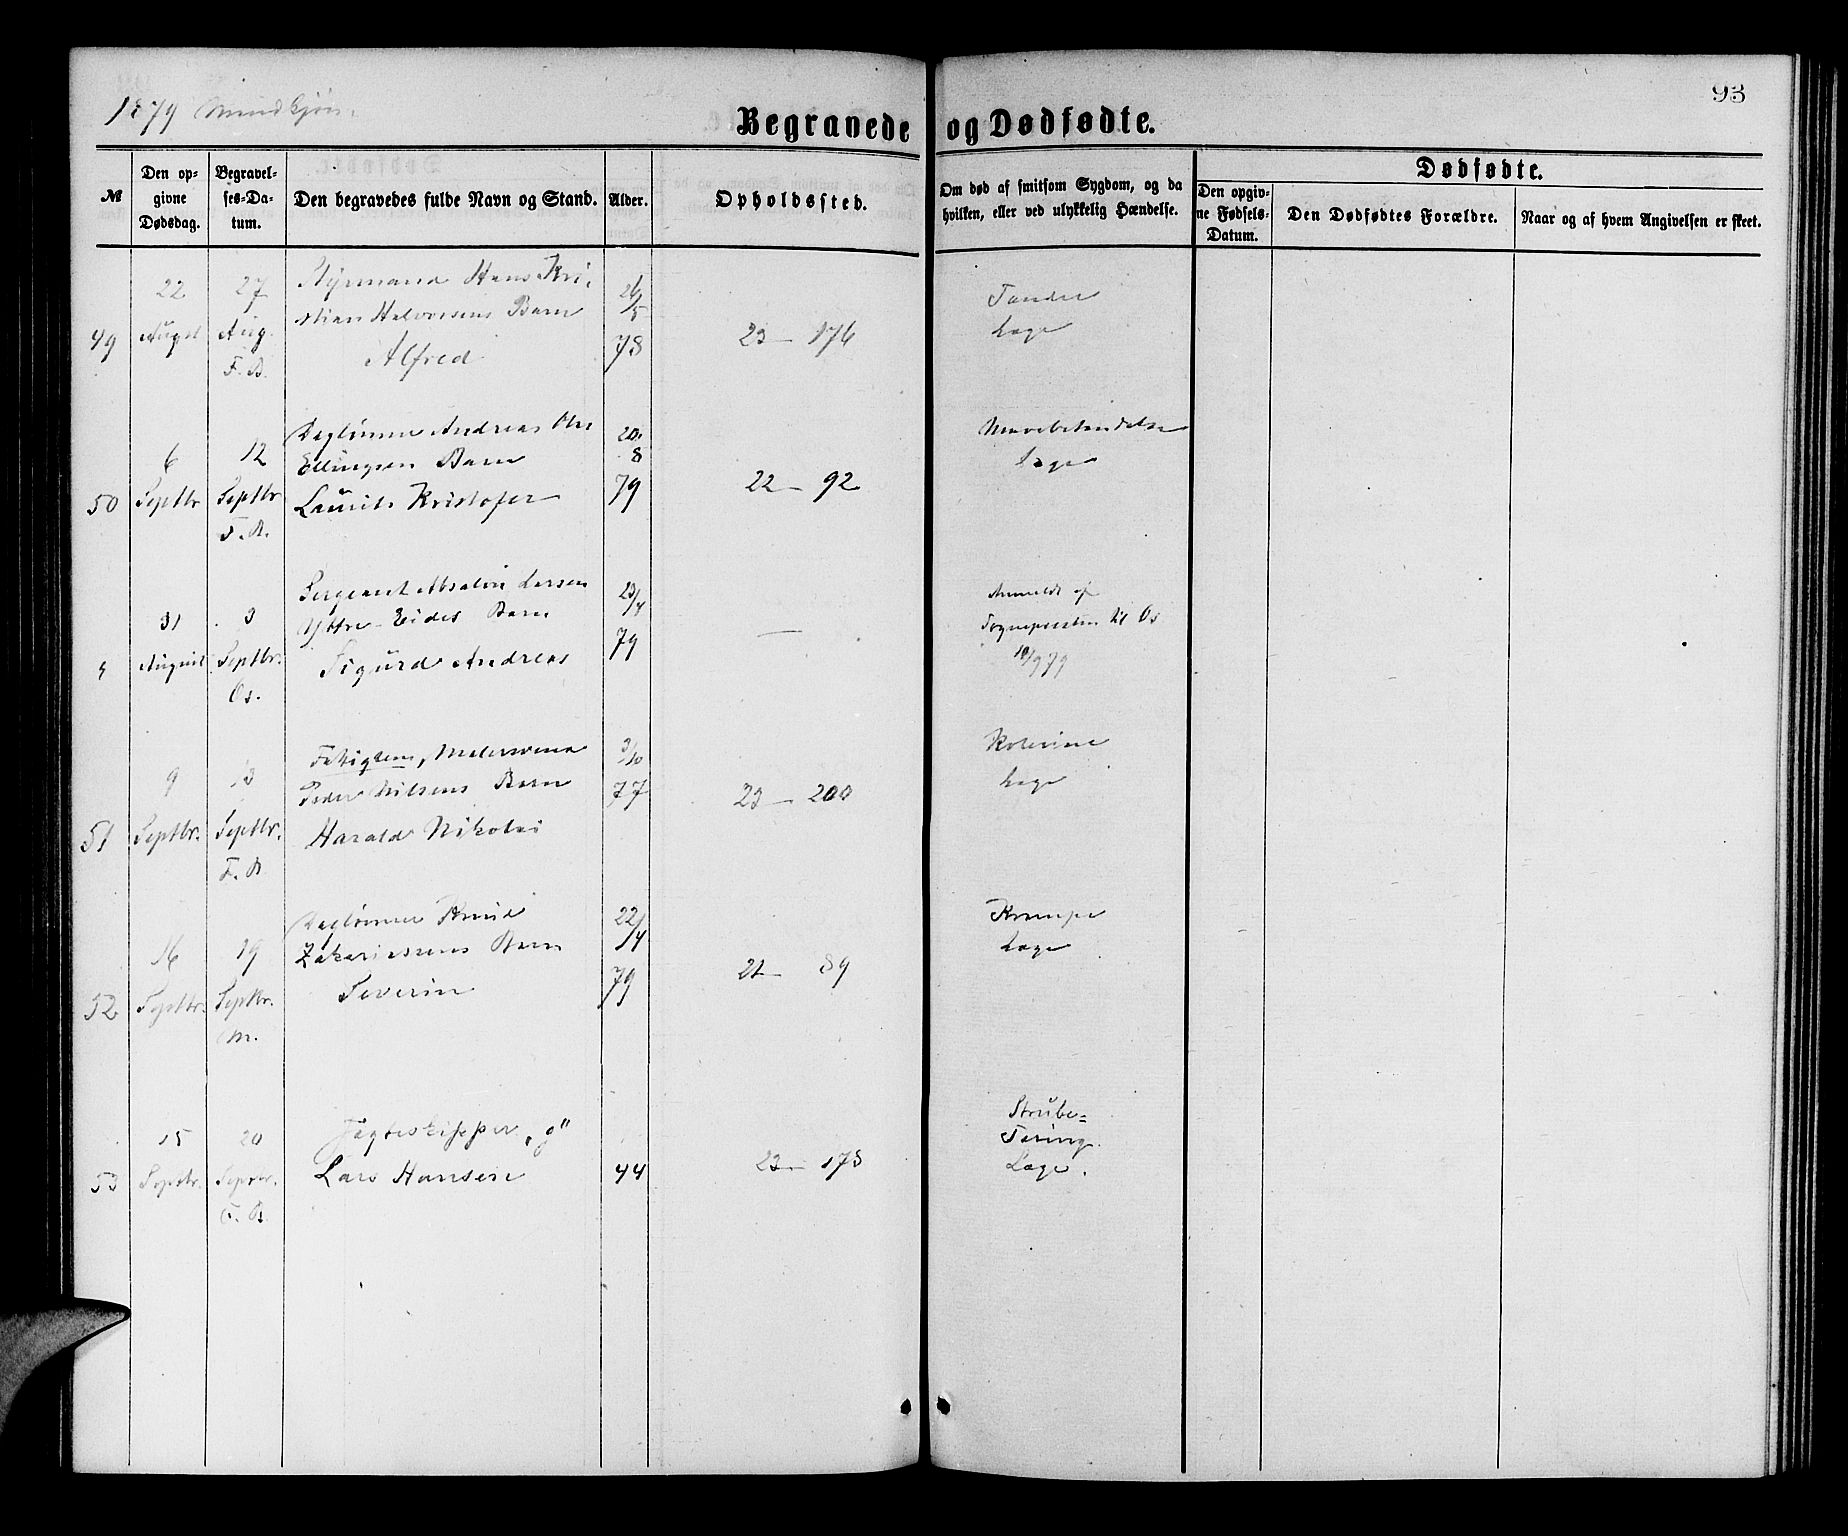 1879 Mindkjøn.
93
Begravede og Dødfødte.
№
Den op-
givne
Dødsdag.
Begravel-
ses-Da-
tum.
Den begravedes fulde Navn og Stand.
Alder.
Opholdssted.
Om død af smitsom Sygdom, og da
hvilken, eller ved ulykkelig Hændelse.
Dødfødte.
Den opgiv-
ne Fødsels-
Datum.
Den Dødfødtes Forældre.
Naar og af hvem Angivelsen er skeet.
49
22
August
27
Aug.
F. B.
Styrmand Hans Kri-
stian Halvorsens Barn
Alfred
26/5
78
23 — 176
Tænder
Læge
50
6
Septbr
12
Septbr
F. B.
Daglønner Andreas Olai
Ellingsen Barn
Laurits Kristofer
20/8
79
22 — 92
Mavebetændelse
Læge
31
August
3
Septbr.
Os.
Sergeant Absalon Larsen
Yttre-Eides Barn
Sigurd Andreas
23/4
79
—
Anmeldt af
Sognepresten til Os
10/9 79
51
9
Septbr.
13
Septbr.
F. B.
Fattiglem, Malersvend
Peder Nilsens Barn
Harald Nikolai
3/10
77
23 — 200
Kolerine
Læge
52
16
Septbr.
19
Septbr.
M.
Daglønner Knud
Zakariassens Barn
Severin
22/4
79
21 — 89
Krampe
Læge
53
15
Septbr.
20
Septbr.
F. B.
Jægteskipper „g"
Lars Hansen
44
23 — 178
Strube-
Tæring.
Læge.